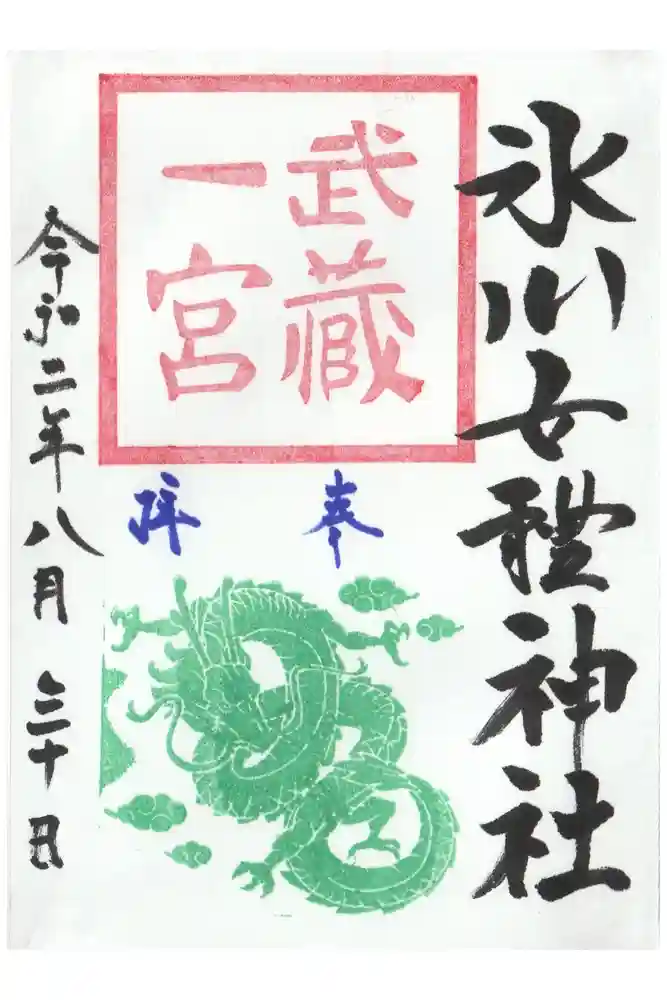 氷川女體神社
武蔵
一宮
奉拝
令和二年八月三十日